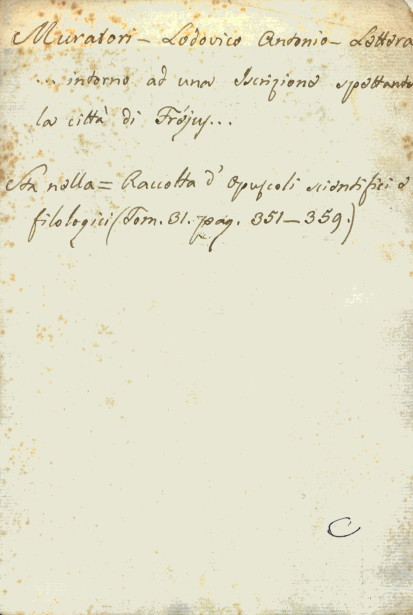 Muratori - Lodovico Antonio - Lettera
... intorno ad una Iscrizione spettante
la città di Fréjus...
Sta nella = Raccolta d' Opuscoli scientifici e
filologici (Tom. 31. pag. 351-359.)
C